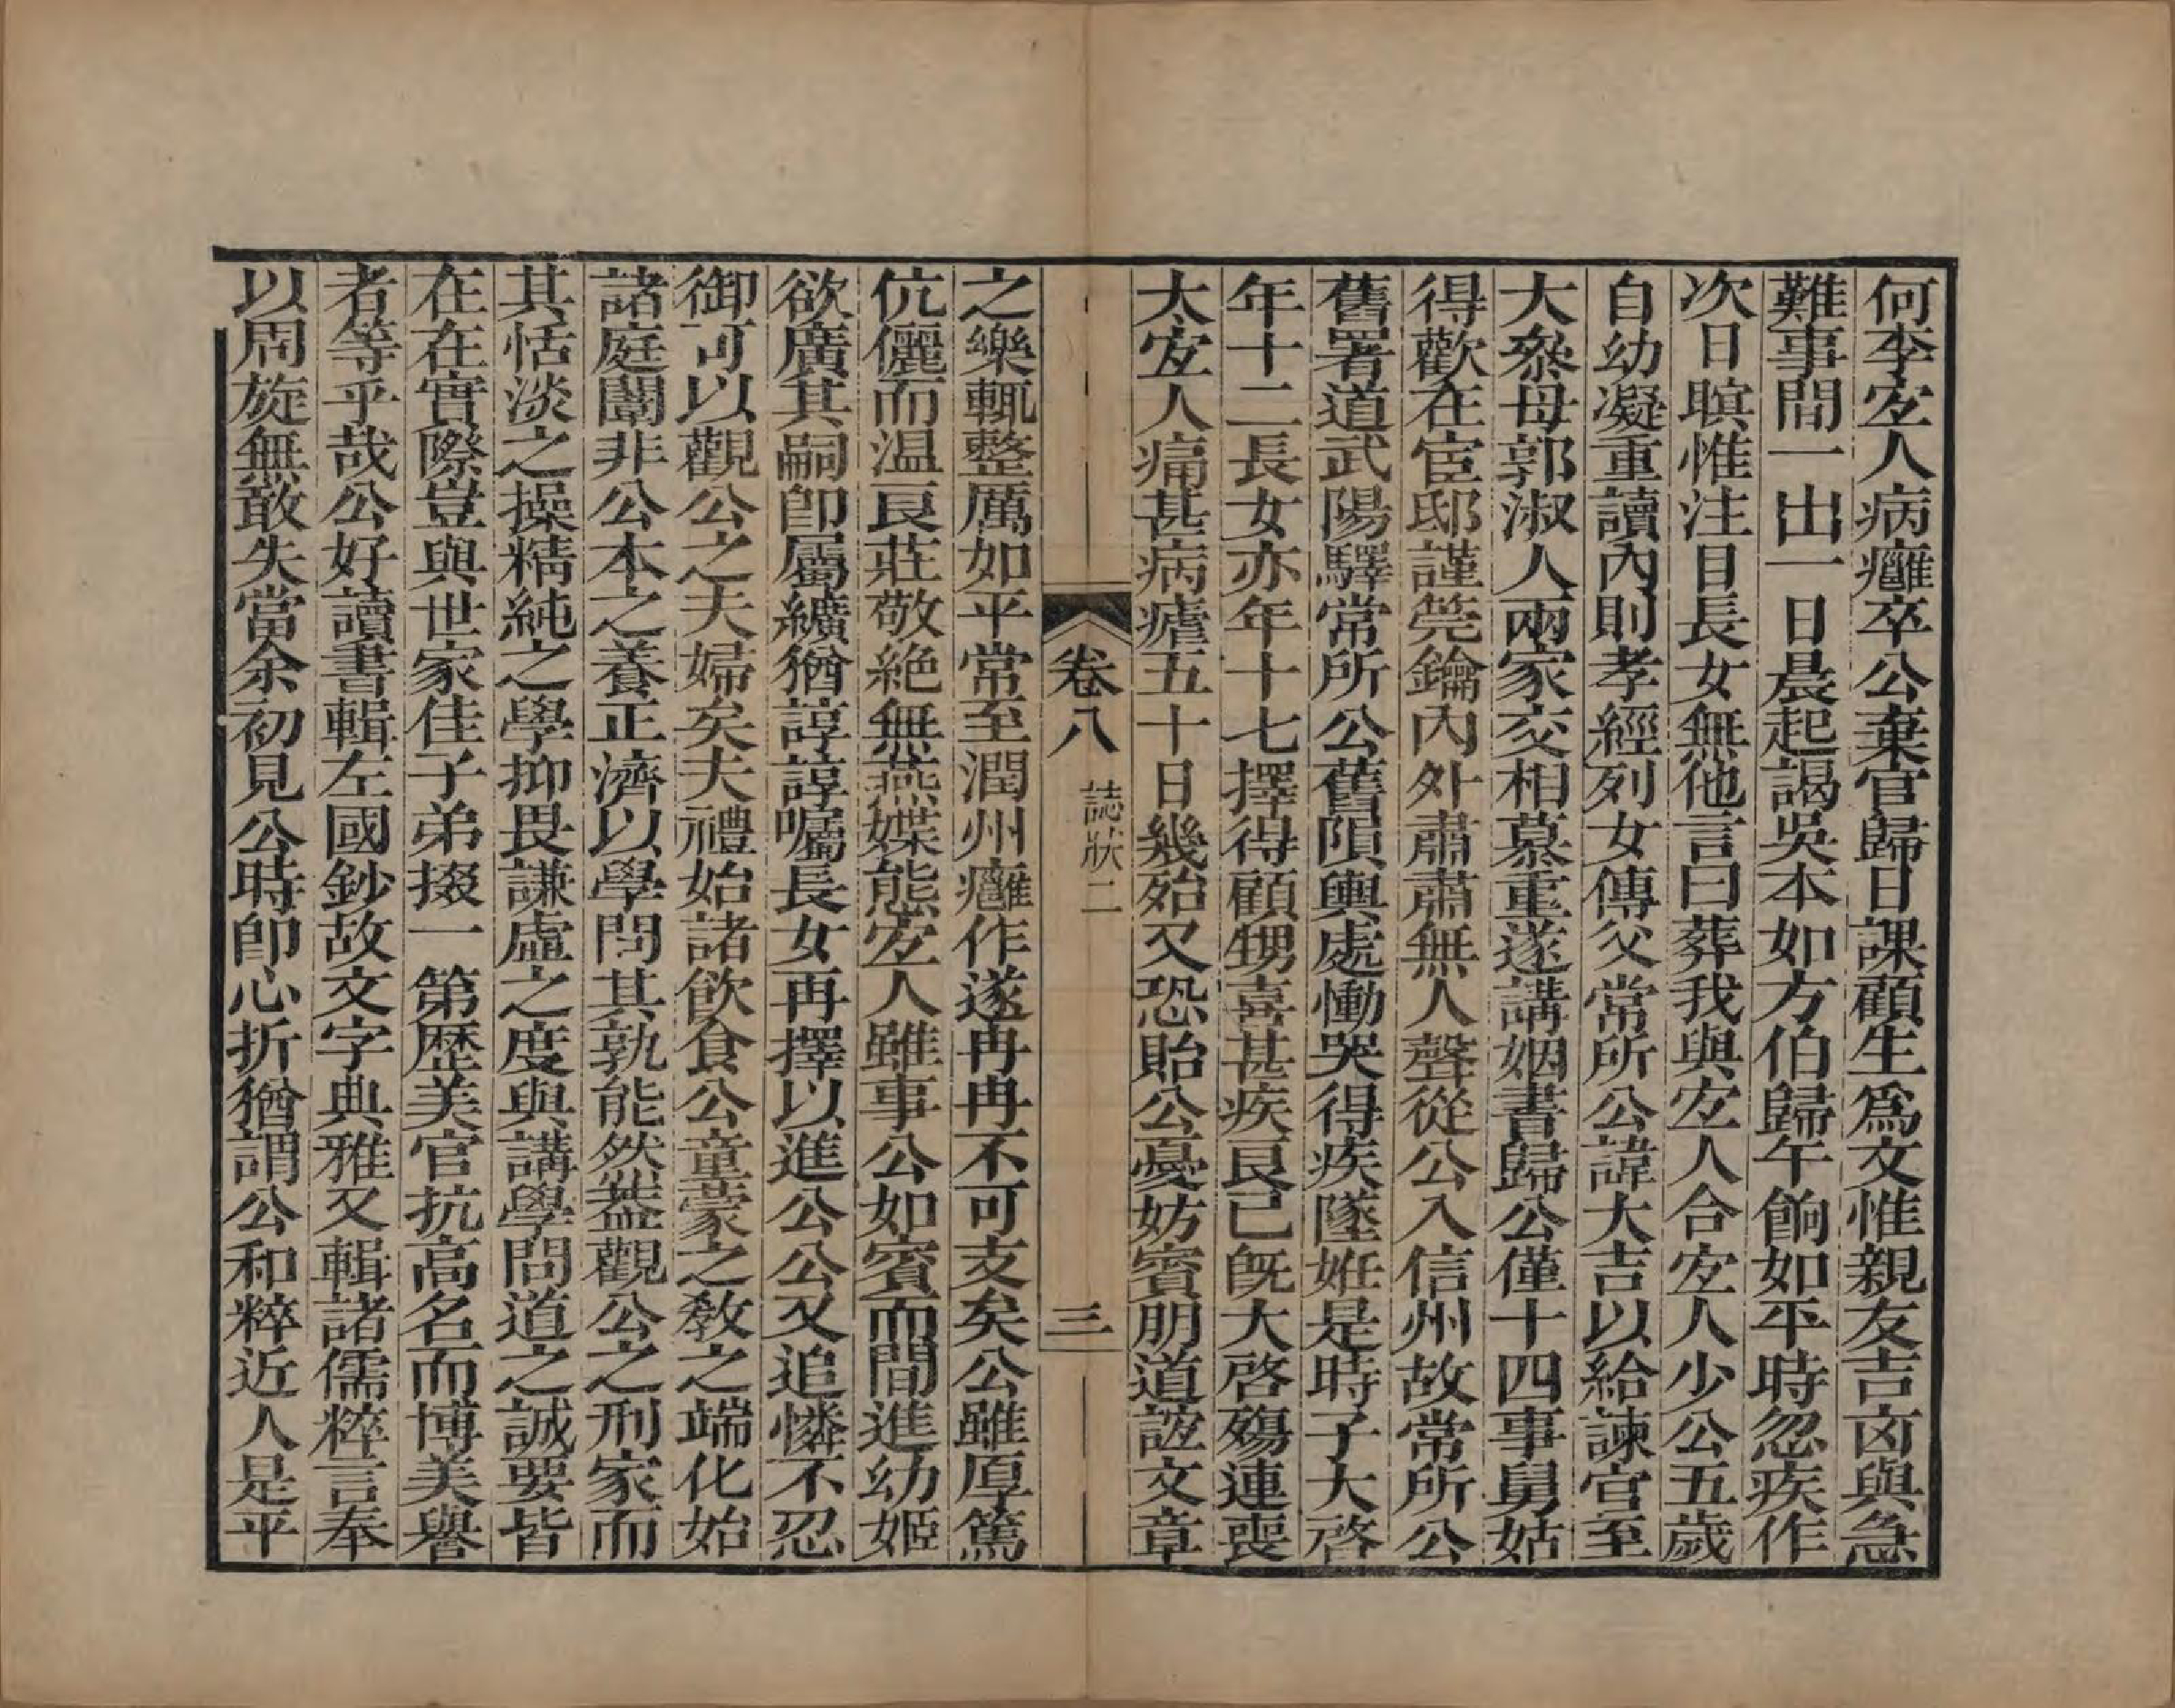 何李宜人病癰卒公棄官歸日課顧生爲文惟親友吉凶與急
難事間一出一日晨起謁吳本如方伯歸午餉如平時忽疾作
次日瞑惟注目長女無他言曰葬我與宜人合宜人少公五歲
自幼凝重讀內則孝經列女傳父常所公諱大吉以給諫官至
大叅母郭淑人兩家交相慕重遂講姻書歸公僅十四事舅姑
得歡在宦邸謹筦鑰內外肅肅無人聲從公入信州故常所公
舊署道武陽驛常所公舊隕輿處慟哭得疾墜姙是時子大啓
年十二長女亦年十七擇得顧甥喜甚疾良已旣大啓殤連喪
太宜人痛甚病瘧五十日幾殆又恐貽公憂妨賓朋道誼文章
卷八 誌狀二 三
之樂輒整厲如平常至潤州癰作遂冉冉不可支矣公雖厚篤
伉儷而溫良莊敬絕無燕媟態宜人雖事公如賓而間進幼姬
欲廣其嗣卽屬纊猶諄諄囑長女再擇以進公公又追憐不忍
御可以觀公之夫婦矣夫禮始諸飲食公童蒙之敎之端化始
諸庭闈非公本之養正濟以學問其孰能然葢觀公之刑家而
其恬淡之操精純之學抑畏謙虛之度與講學問道之誠要皆
在在實際豈與世家佳子弟掇一第歷美官抗高名而博美譽
者等乎哉公好讀書輯左國鈔故文字典雅又輯諸儒粹言奉
以周旋無敢失當余初見公時卽心折猶謂公和粹近人是平